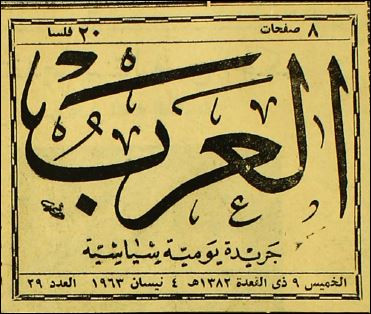 ٨ صفحات ٢٠ فلسا
العرب
جريدة يومية سياسية
الخميس ٩ ذي القعدة ١٣٨٢هـ ٤ نيسان ١٩٦٣ العدد ٢٩